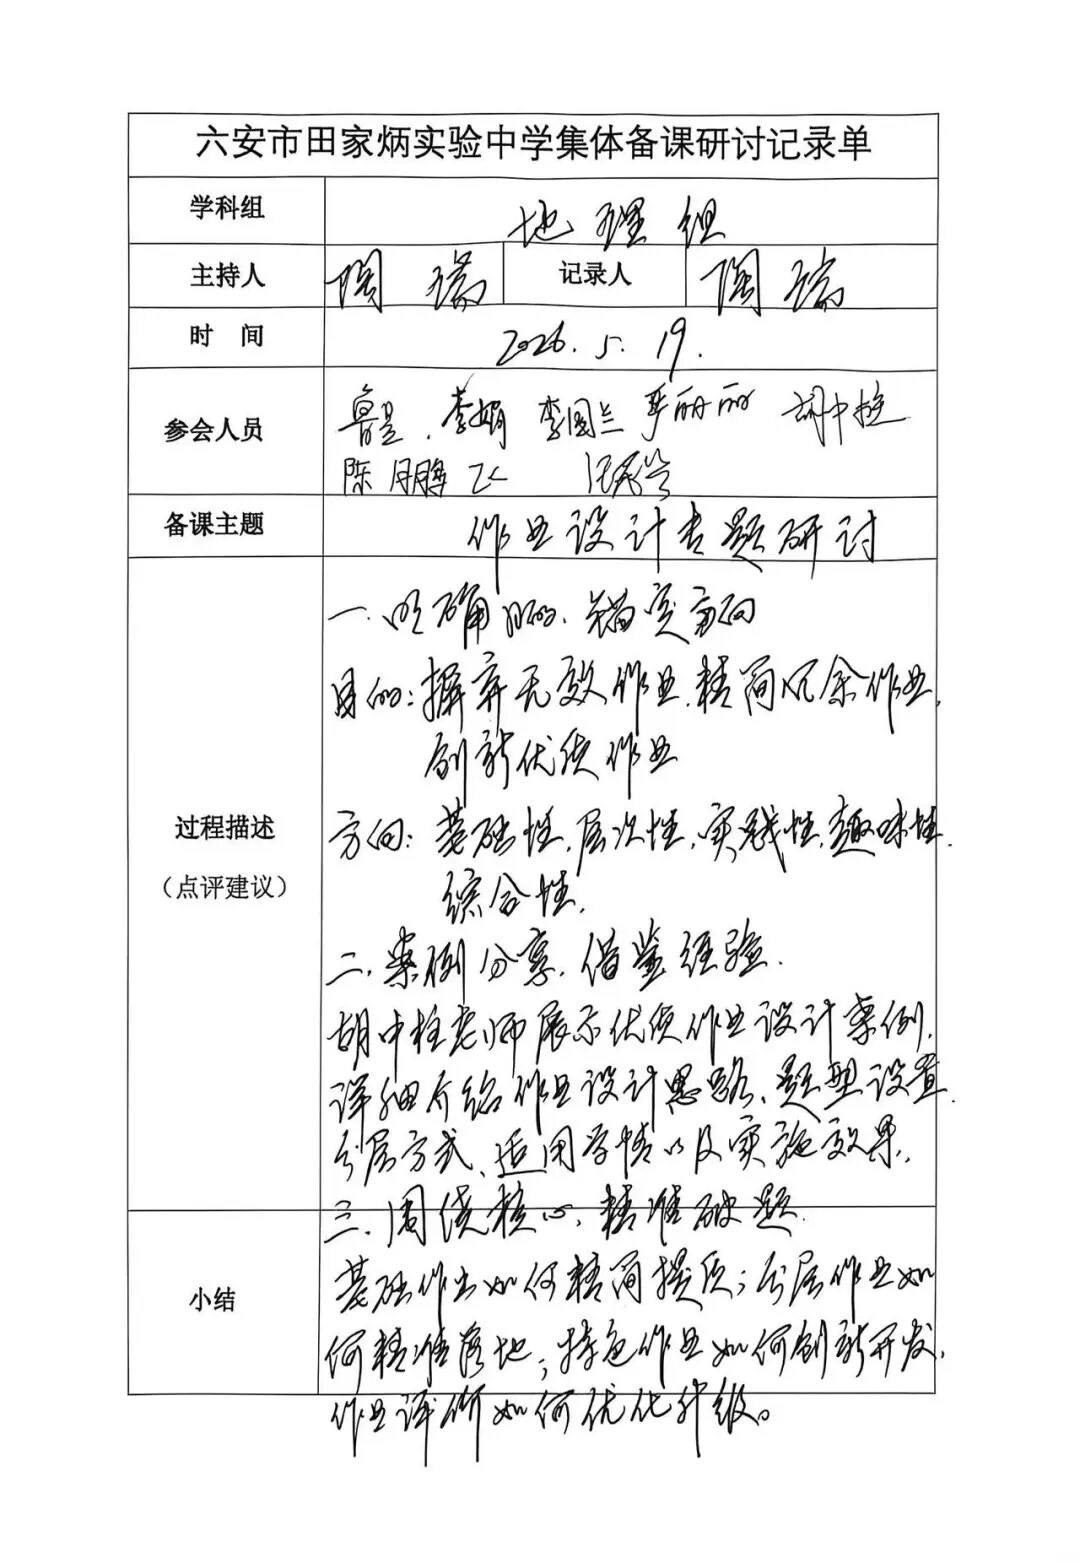 六安市田家炳实验中学集体备课研讨记录单
学科组 地理组
主持人 陶瑞 记录人 陶瑞
时 间 2026.5.19.
参会人员 李娟 李国兰 严丽丽 胡中柱
陈月鹏
备课主题 作业设计专题研讨
一.明确目的、锚定方向
目的:摒弃无效作业.精简冗余作业,
创新优质作业
过程描述
(点评建议)
方向:基础性.层次性.实践性.趣味性.
综合性.
二.案例分享.借鉴经验.
胡中柱老师展示优质作业设计案例.
详细介绍作业设计思路、题型设置.
分层方式、适用学情以及实施效果.
三.围绕核心,精准破题.
小结
基础作业如何精简提质;分层作业如
何精准落地;特色作业如何创新开发,
作业评价如何优化升级。